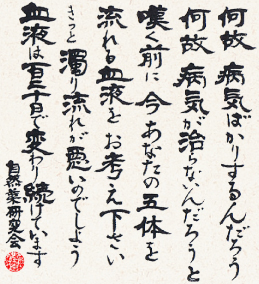 何故 病気ばかりするんだろう
何故 病気が治らないんだろうと
嘆く前に 今あなたの五体を
流れる血液を お考え下さい
きっと 濁り流れが悪いのでしょう
血液は百二十日で変わり続けています
自然薬研究会